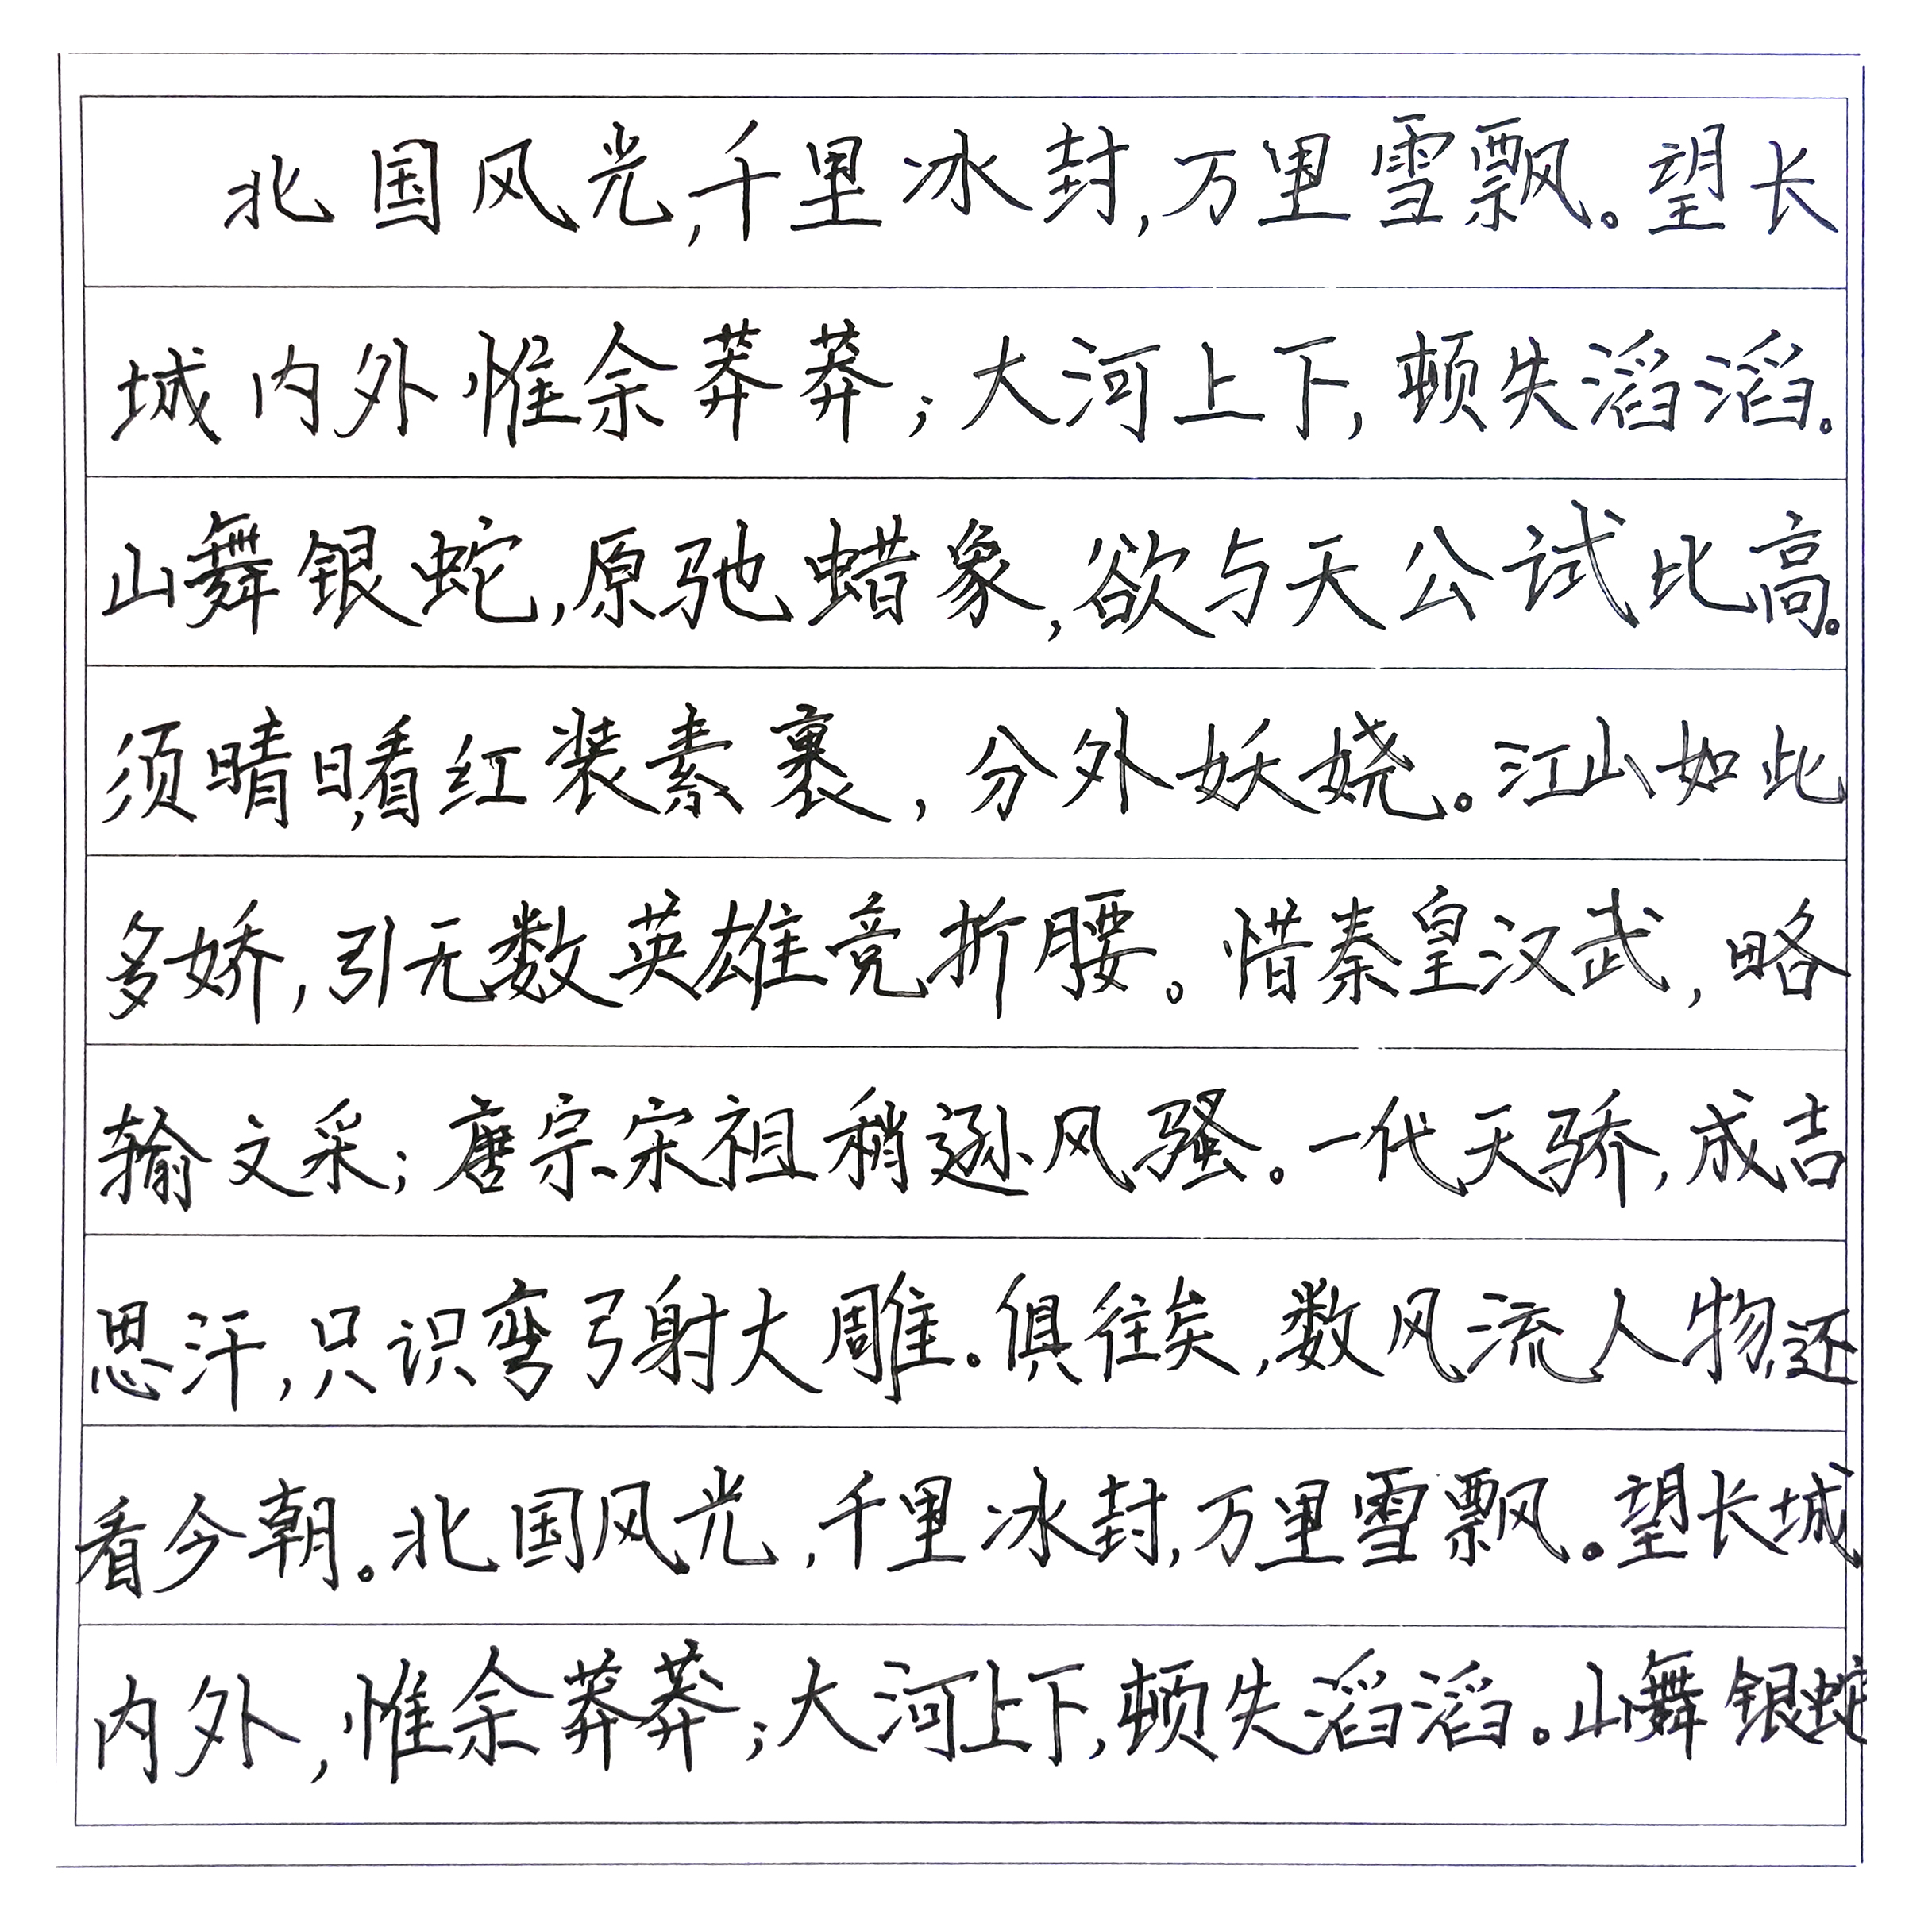 北国风光,千里冰封,万里雪飘。望长
城内外惟余莽莽;大河上下,顿失滔滔。
山舞银蛇,原驰蜡象,欲与天公试比高。
须晴日,看红装素裹,分外妖娆。江山如此
多娇,引无数英雄竞折腰。惜秦皇汉武,略
输文采;唐宗、宋祖稍逊风骚。一代天骄,成吉
思汗,只识弯弓射大雕。俱往矣,数风流人物,还
看今朝。北国风光,千里冰封,万里雪飘。望长城
内外,惟余莽莽;大河上下,顿失滔滔。山舞银蛇